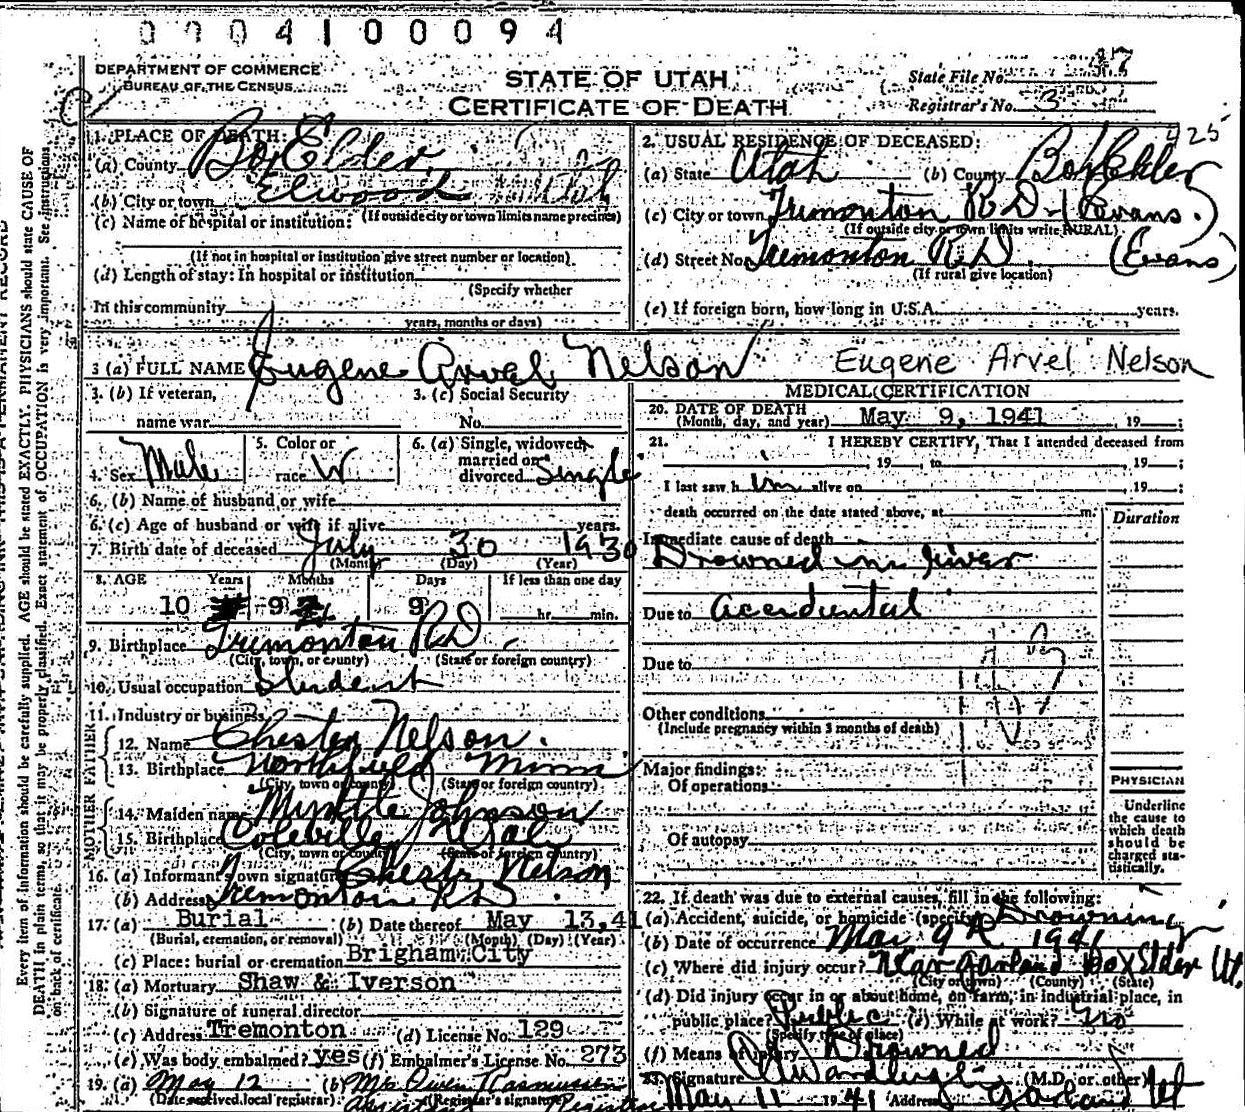 0004100094
DEPARTMENT OF COMMERCE
BUREAU OF THE CENSUS
STATE OF UTAH
CERTIFICATE OF DEATH
State File No. 47
Registrar's No. 3
425
1. PLACE OF DEATH:
(a) County Box Elder
(b) City or town Elwood
(If outside city or town limits name precinct)
(c) Name of hospital or institution:
(If not in hospital or institution give street number or location)
(d) Length of stay: In hospital or institution
(Specify whether
In this community
years, months or days)
2. USUAL RESIDENCE OF DECEASED:
(a) State Utah (b) County Box Elder
(c) City or town Tremonton R D - (Evans.)
(If outside city or town limits write RURAL)
(d) Street No. Tremonton R D. (Evans)
(If rural give location)
(e) If foreign born, how long in U.S.A. years.
3 (a) FULL NAME Eugene Arvel Nelson Eugene Arvel Nelson
3. (b) If veteran,
name war
3. (c) Social Security
No.
4. Sex Male
5. Color or
race W
6. (a) Single, widowed,
married or
divorced Single
6. (b) Name of husband or wife
6. (c) Age of husband or wife if alive years.
7. Birth date of deceased July 30 1930
(Month) (Day) (Year)
8. AGE Years Months Days If less than one day
10 9 9 hr. min.
9. Birthplace Tremonton R D
(City, town, or county) (State or foreign country)
10. Usual occupation Student
11. Industry or business
FATHER
12. Name Chester Nelson.
13. Birthplace Northfield Minn
(City, town or county) (State or foreign country)
MOTHER
14. Maiden name Myrtle Johnson
15. Birthplace Coleville
(City, town or county) (State or foreign country)
16. (a) Informant's own signature Chester Nelson
(b) Address Tremonton R D.
17. (a) Burial (b) Date thereof May 13, 41
(Burial, cremation, or removal) (Month) (Day) (Year)
(c) Place: burial or cremation Brigham City
18. (a) Mortuary Shaw & Iverson
(b) Signature of funeral director
(c) Address Tremonton (d) License No. 129
(e) Was body embalmed? yes (f) Embalmer's License No. 273
19. (a) May 12 (b) Mrs Owen Rasmussen
(Date received local registrar) (Registrar's signature)
MEDICAL CERTIFICATION
20. DATE OF DEATH
(Month, day, and year) May 9, 1941 19 ;
21. I HEREBY CERTIFY, That I attended deceased from
, 19 , to , 19 ;
I last saw h im alive on 19 ;
death occurred on the date stated above, at m.
Duration
Immediate cause of death
Drowned in river
Due to accidental
Due to
Other conditions
(Include pregnancy within 3 months of death)
Major findings:
Of operations
Of autopsy
PHYSICIAN
Underline
the cause to
which death
should be
charged sta-
tistically.
22. If death was due to external causes, fill in the following:
(a) Accident, suicide, or homicide (specify) Drowning
(b) Date of occurrence May 9th 1941
(c) Where did injury occur? Near Garland Box Elder Ut.
(City or town) (County) (State)
(d) Did injury occur in or about home, on farm, in industrial place, in
public place? Public (e) While at work? no
(Specify type of place)
(f) Means of injury Drowned
23. Signature (M.D. or other)
May 11 1941 Address Garland Ut
Every item of information should be carefully supplied. AGE should be stated EXACTLY. PHYSICIANS should state CAUSE OF
DEATH in plain terms, so that it may be properly classified. Exact statement of OCCUPATION is very important. See instructions
on back of certificate.